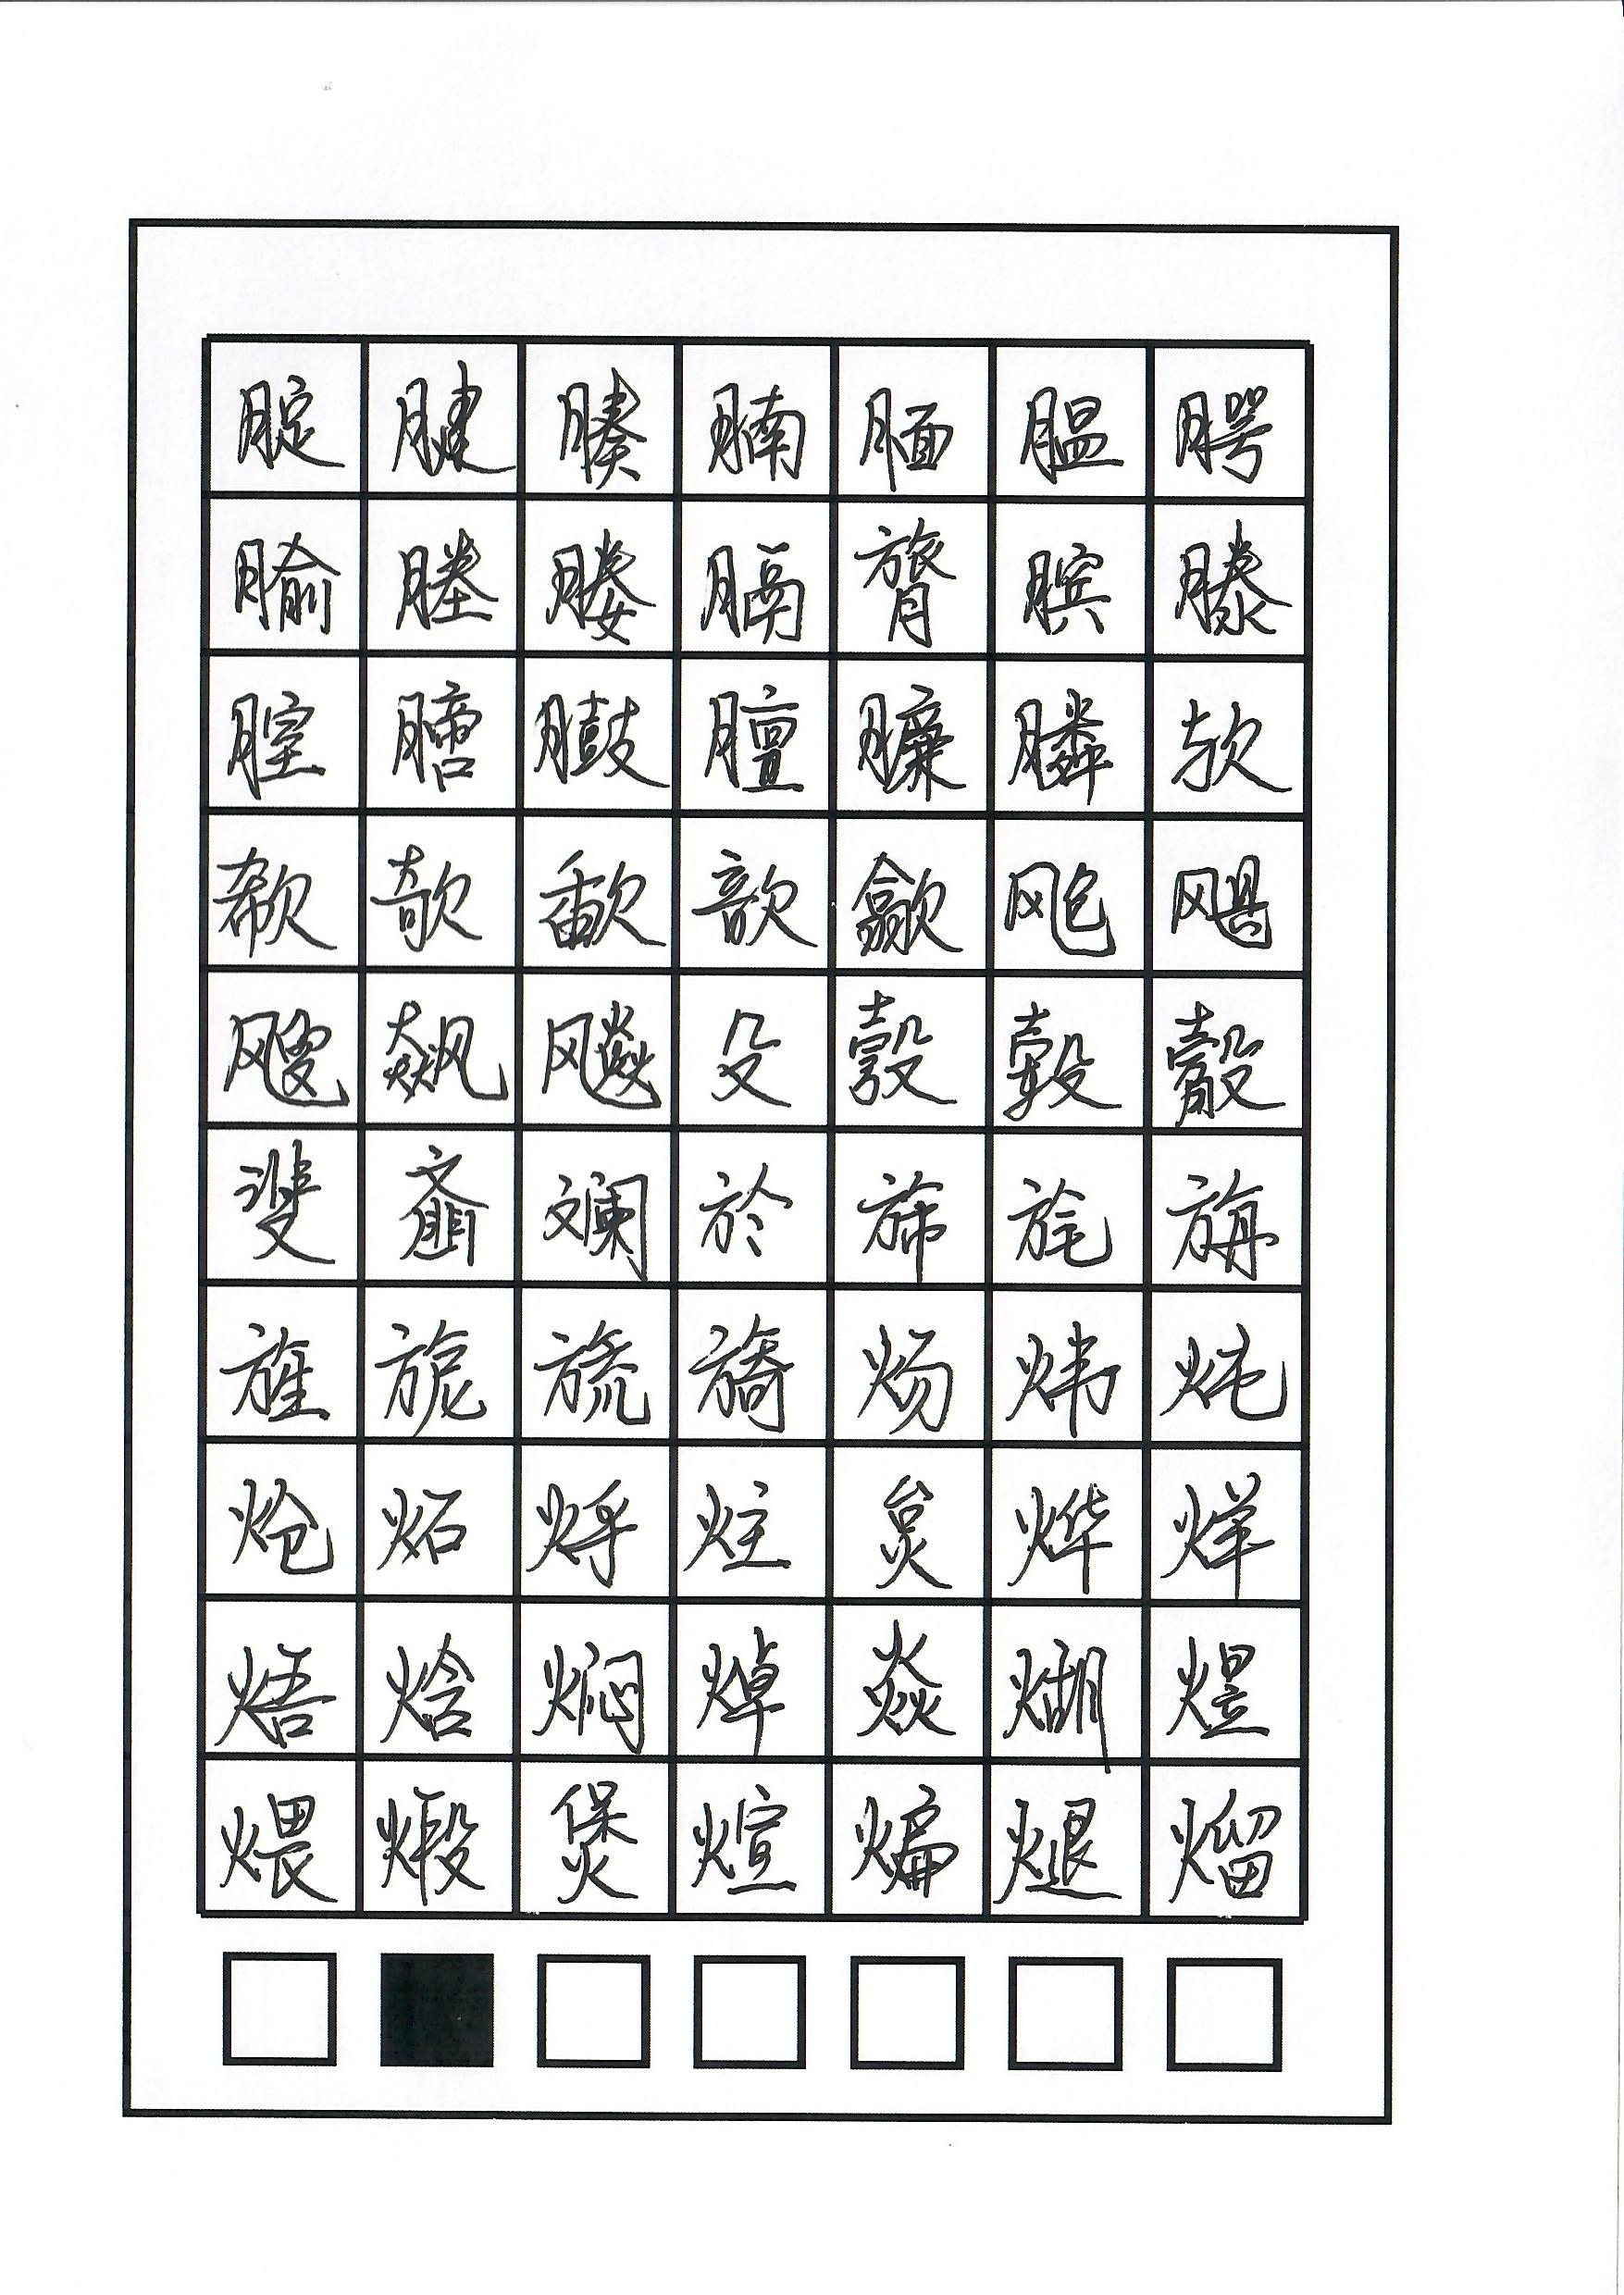 腚腱腠腩腼腽腭
腧塍媵膈膂膑滕
膣膪臌膻臁膦欤
欷欹歃歆歙飑飓
飕飙飚殳彀毂觳
斐齑斓於旆旄旃
旌旎旒旖炀炜炖
炝炻烀炷炱烨烊
焐焓焖焯焱煳煜
煨煅煲煊煸煺熘